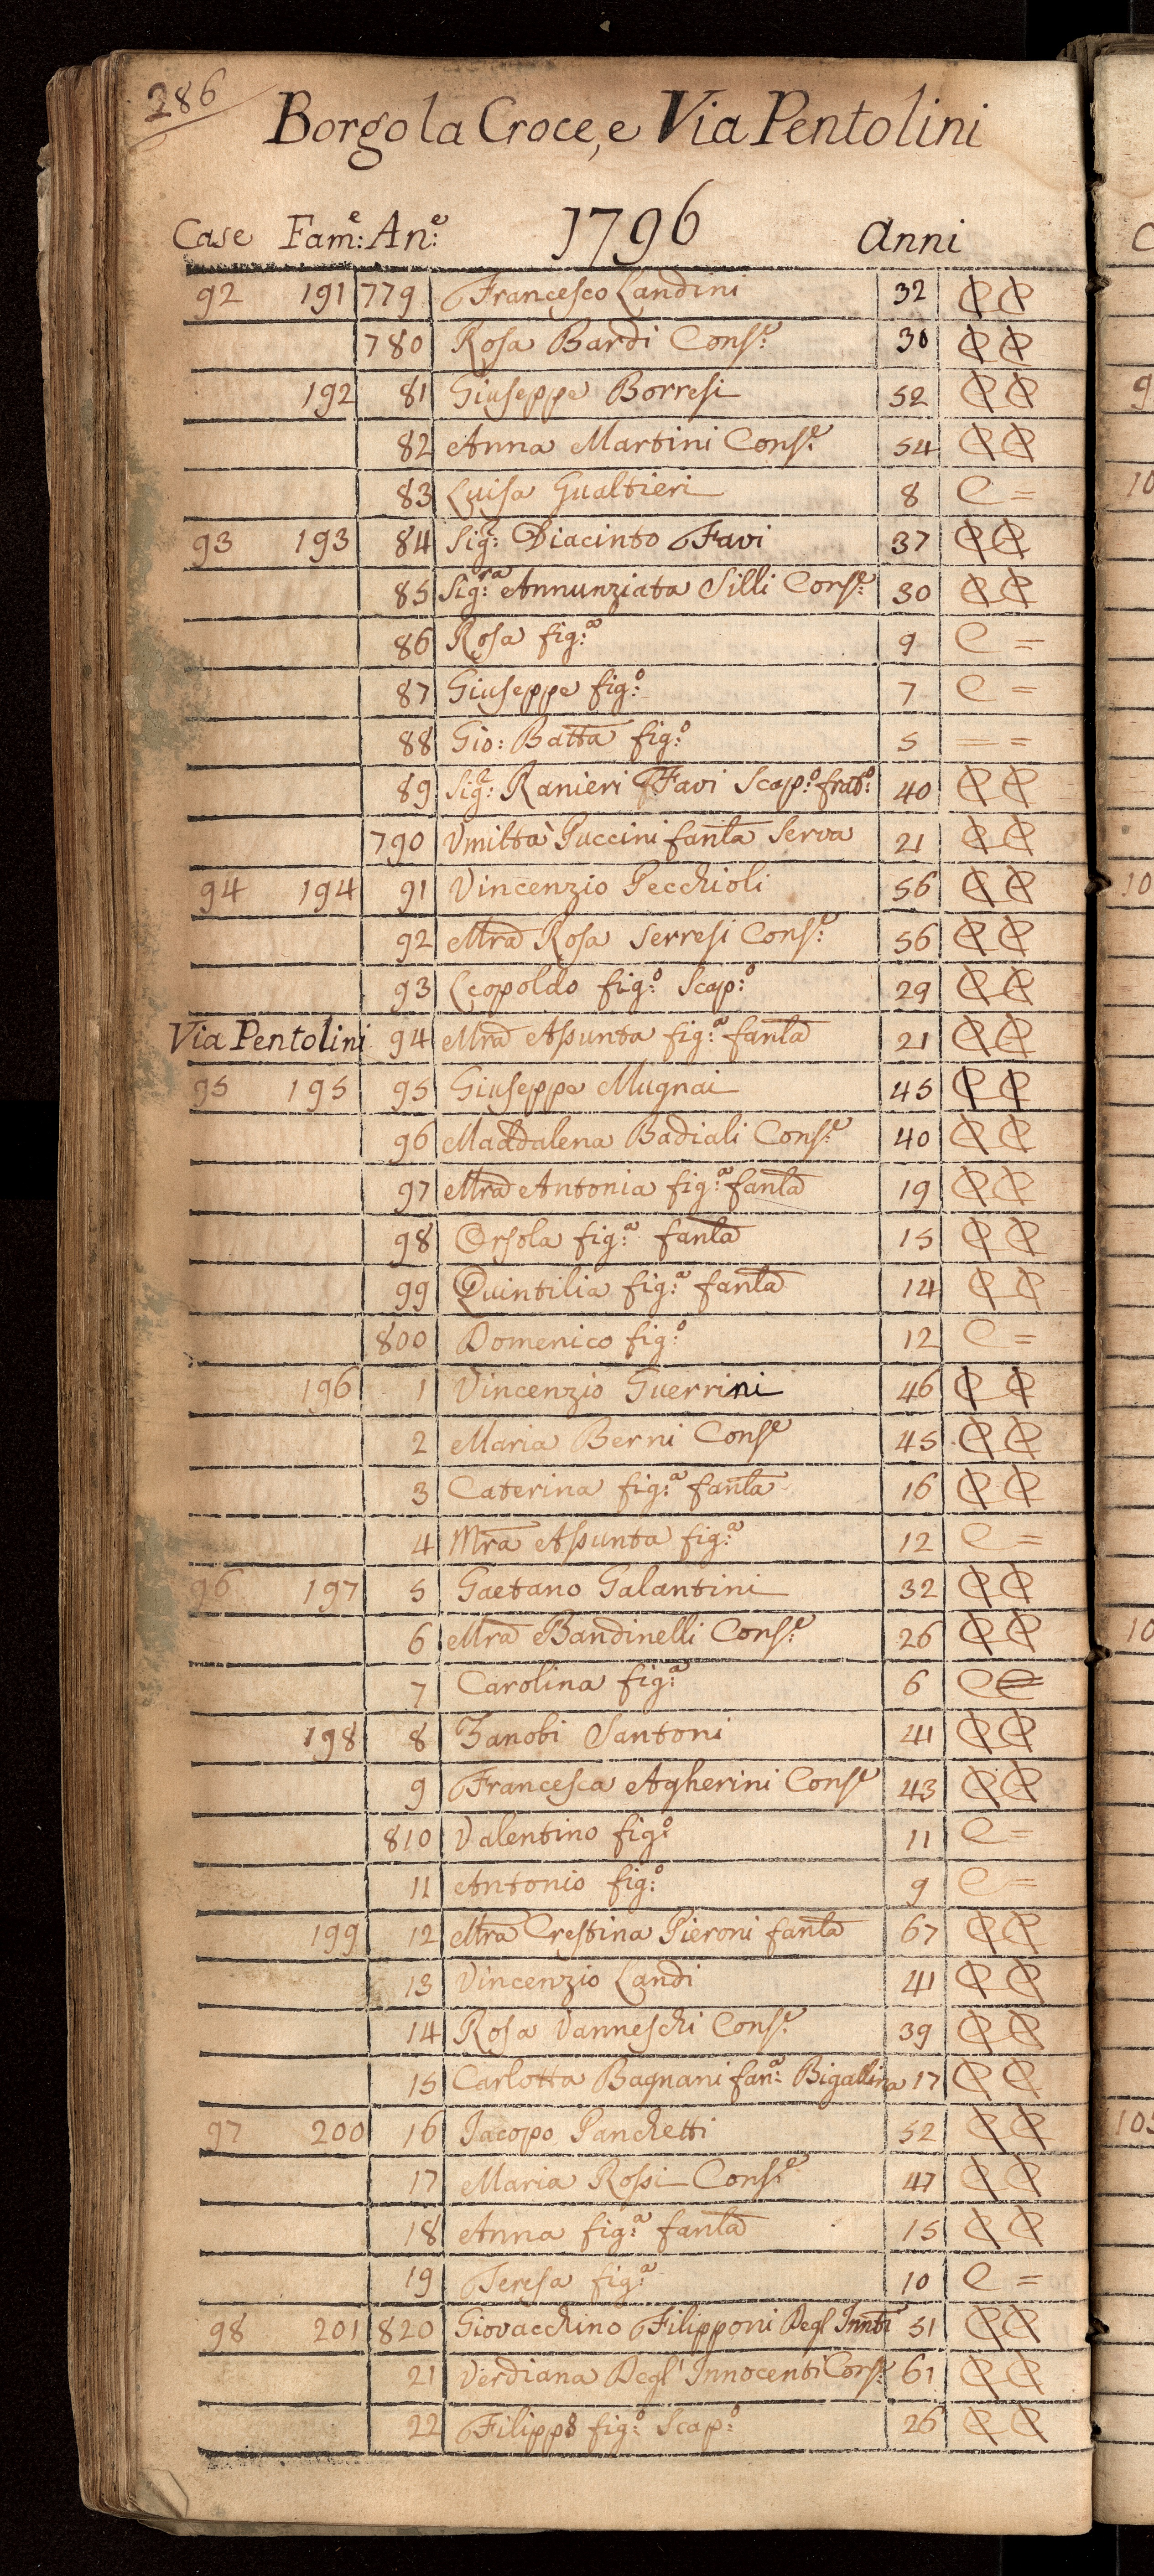 286
Borgo la Croce, e Via Pentolini
Case Fam:e An:e 1796 Anni
92 191 779 Francesco Landini 32 CC
780 Rosa Bardi Cons:e 30 CC
192 81 Giuseppe Borresi 52 CC
82 Anna Martini Cons:e 54 CC
83 Luisa Gualtieri 8 C =
93 193 84 Sig:r Diacinto Favi 37 CC
85 Sig:ra Annunziata Silli Cons:e 30 CC
86 Rosa fig:a 9 C =
87 Giuseppe fig:o 7 C =
88 Gio: Batta fig:o 5 = =
89 Sig:r Ranieri Favi Scap:o frat:o 40 CC
790 Umiltà Puccini fanla Serva 21 CC
94 194 91 Vincenzio Pecchioli 56 CC
92 Mra Rosa Serresi Cons:e 56 CC
93 Leopoldo fig:o Scap:o 29 CC
Via Pentolini 94 Mra Assunta fig:a fanla 21 CC
95 195 95 Giuseppe Mugnai 45 CC
96 Maddalena Badiali Cons:e 40 CC
97 Mra Antonia fig:a fanla 19 CC
98 Orsola fig:a fanla 15 CC
99 Quintilia fig:a fanla 14 CC
800 Domenico fig:o 12 C =
196 1 Vincenzio Guerrini 46 CC
2 Maria Berni Conse 45 CC
3 Caterina fig:a fanla 16 CC
4 Mra Assunta fig:a 12 C =
96 197 5 Gaetano Galantini 32 CC
6 Mra Bandinelli Cons:e 26 CC
7 Carolina fig:a 6 C =
198 8 Zanobi Santoni 41 CC
9 Francesca Agherini Conse 43 CC
810 Valentino fig:o 11 C =
11 Antonio fig:o 9 C =
199 12 Mra Crestina Pieroni fanla 67 CC
13 Vincenzio Landi 41 CC
14 Rosa Vanneschi Cons:e 39 CC
15 Carlotta Bagnani fan:a Bigallina 17 CC
97 200 16 Jacopo Panchetti 52 CC
17 Maria Rossi Cons:e 47 CC
18 Anna fig:a fanla 15 CC
19 Teresa fig:a 10 C =
98 201 820 Giovacchino Filipponi Degl' Innti 51 CC
21 Verdiana Degl' Innocenti Cons:e 61 CC
22 Filippo fig:o Scap:o 26 CC